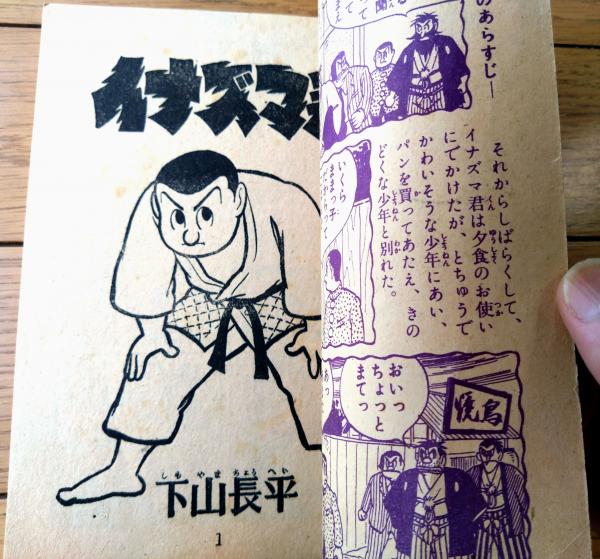 イナズマ
下山長平
しもやまちょうへい
1
のあらすじー
それからしばらくして、
イナズマ君は夕食のお使い
にでかけたが、とちゅうで
かわいそうな少年にあい、
パンを買ってあたえ、きの
どくな少年と別れた。
いくら
ままっ子
おいっ
ちょっと
まてっ
焼鳥